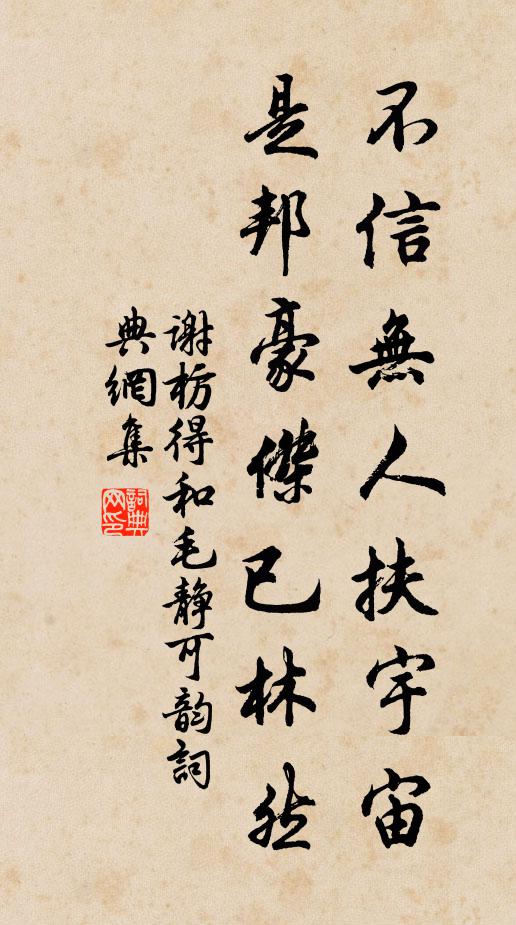 不信無人扶宇宙
是邦豪傑已林然
謝枋得和毛靜可韵詞
典網集
詞典網印